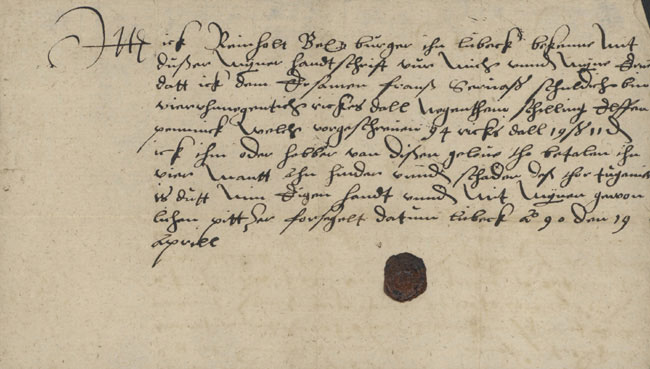 Ick Reinholt Belo burger ihn lubeck bekenne mit
dußer myner handtschrifft vur mich unnd myne Erve
datt ick dem Ersamen Frans schuldich bin
veerunnegentich rickes dall negenthein schilling Elffen
penninck welche vorgeschreven 94 ricks dall 19 ß 11 d
ick ihm oder hebber van dißen gelove tho betalen ihn
vier mantt ahn hinder unnd schaden deß tho tugenis
is dutt min Eigen handt unnd mit mynen gewon
lichen pittzer forsegelt datum lubeck ao 90 den 19
Aprill